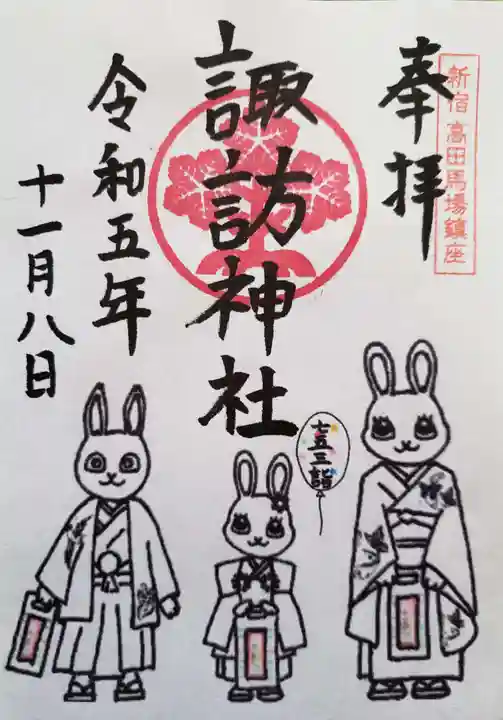 奉拝
新宿 高田馬場鎮座
諏訪神社
令和五年
十一月八日
七五三詣